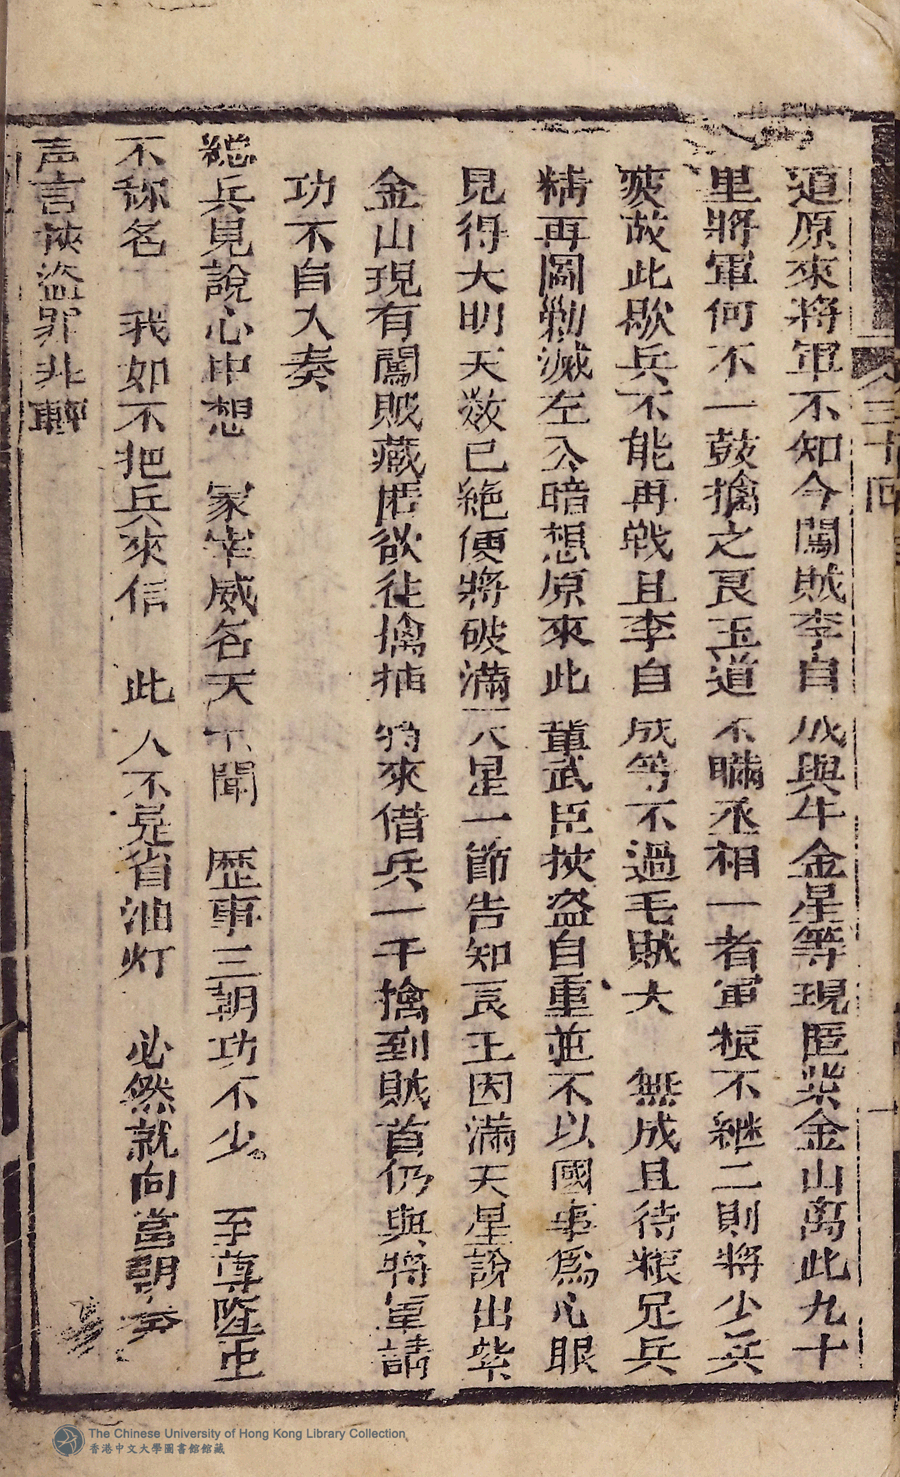 卷三 十四
道原來將軍不知今闖賊李自成與牛金星等現匿紫金山离此九十
里將軍何不一鼓擒之良玉道不瞞丞相一者軍粮不継二則將少兵
疲故此歇兵不能再戦且李自成等不過毛賊大 無成且待粮足兵
精再圖勦滅左公暗想原來此董武臣挾盗自重並不以國事為心眼
見得大明天数已絶便將破滿天星一節告知良玉因滿天星說出紫
金山現有闖賊藏匿欲往擒捕特來借兵一千擒到賊首仍與將軍請
功不自入奏
總兵見說心中想 冢宰威名天下聞 歴事三朝功不少 至尊陞正
不称名 我如不把兵來信 此人不是省油灯 必然就向當朝奏
声言挾盗罪非輕
The Chinese University of Hong Kong Library Collection
香港中文大學圖書館館藏